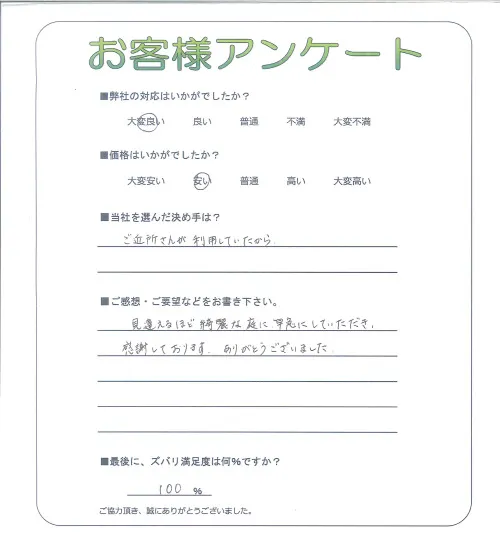 お客様アンケート
■弊社の対応はいかがでしたか？
大変良い 良い 普通 不満 大変不満
■価格はいかがでしたか？
大変安い 安い 普通 高い 大変高い
■当社を選んだ決め手は？
ご近所さんが利用していたから.
■ご感想・ご要望などをお書き下さい。
見違えるほど綺麗な庭に早急にしていただき、
感謝しております. ありがとうございました.
■最後に、ズバリ満足度は何%ですか？
100 %
ご協力頂き、誠にありがとうございました。